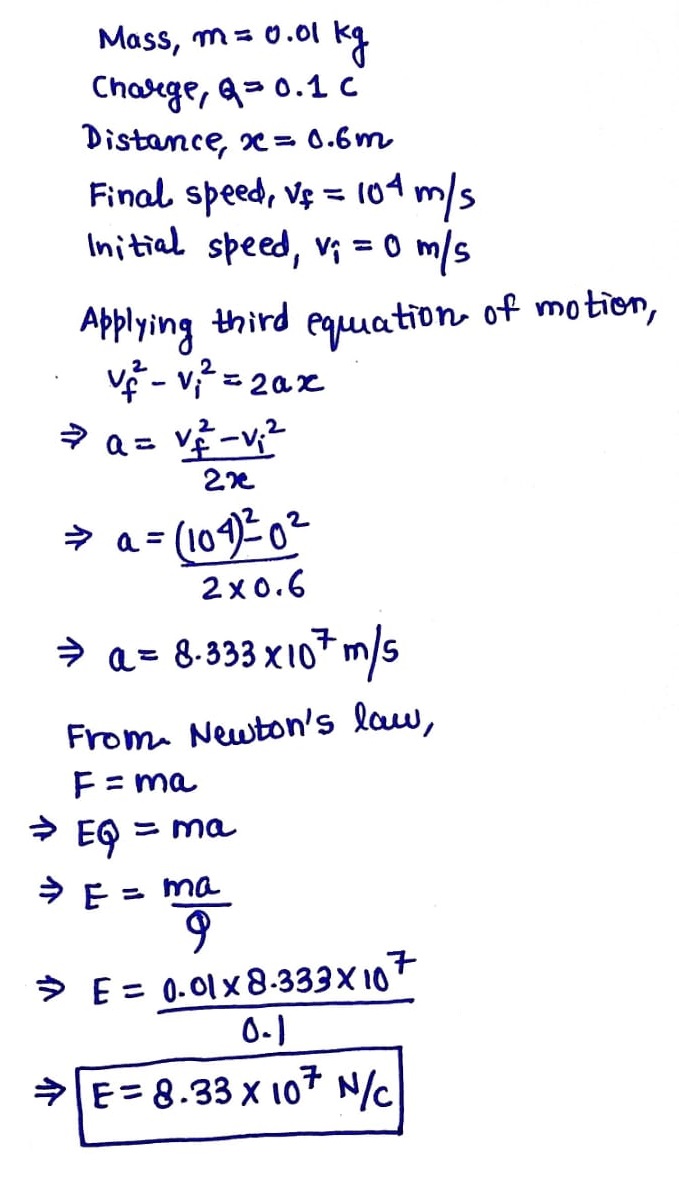 Mass, m = 0.01 kg
Charge, Q = 0.1 C
Distance, x = 0.6m
Final speed, vf = 10⁴ m/s
Initial speed, vi = 0 m/s
Applying third equation of motion,
vf² - vi² = 2ax
⇒ a = (vf² - vi²) / 2x
⇒ a = ((10⁴)² - 0²) / (2 × 0.6)
⇒ a = 8.333 × 10⁷ m/s
From Newton's law,
F = ma
⇒ EQ = ma
⇒ E = ma / Q
⇒ E = (0.01 × 8.333 × 10⁷) / 0.1
⇒ E = 8.33 × 10⁷ N/C